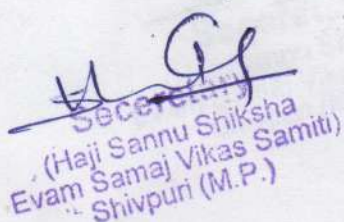 Seceretary
(Haji Sannu Shiksha
Evam Samaj Vikas Samiti)
Shivpuri (M.P.)